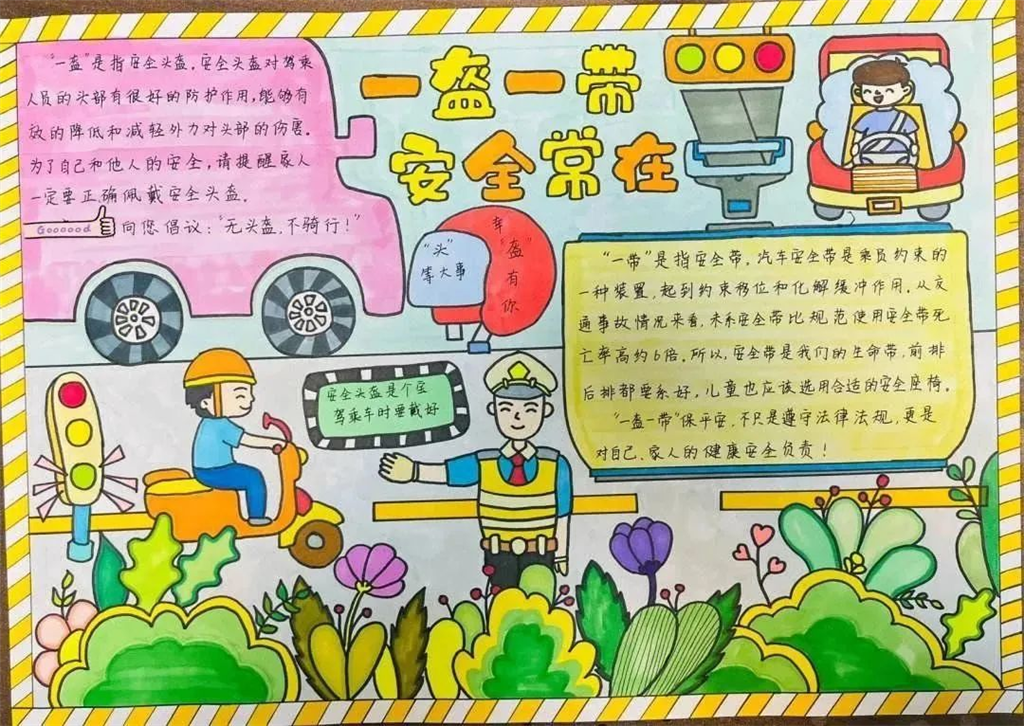 一盔一带
安全常在
"一盔"是指安全头盔,安全头盔对驾乘
人员的头部有很好的防护作用,能够有
放的降低和减轻外力对头部的伤害。
为了自己和他人的安全,请提醒家人
一定要正确佩戴安全头盔。
Goooood 向您倡议:"无头盔,不骑行!"
"头"
等大事
幸
"盔"
有
你
"一带"是指安全带,汽车安全带是乘员约束的
一种装置,起到约束移位和化解缓冲作用。从交
通事故情况来看,未系安全带比规范使用安全带死
亡率高约6倍。所以,安全带是我们的生命带,前排
后排都要系好,儿童也应该选用合适的安全座椅。
"一盔一带"保平安,不只是遵守法律法规,更是
对自己、家人的健康安全负责!
安全头盔是个宝
驾乘车时要戴好